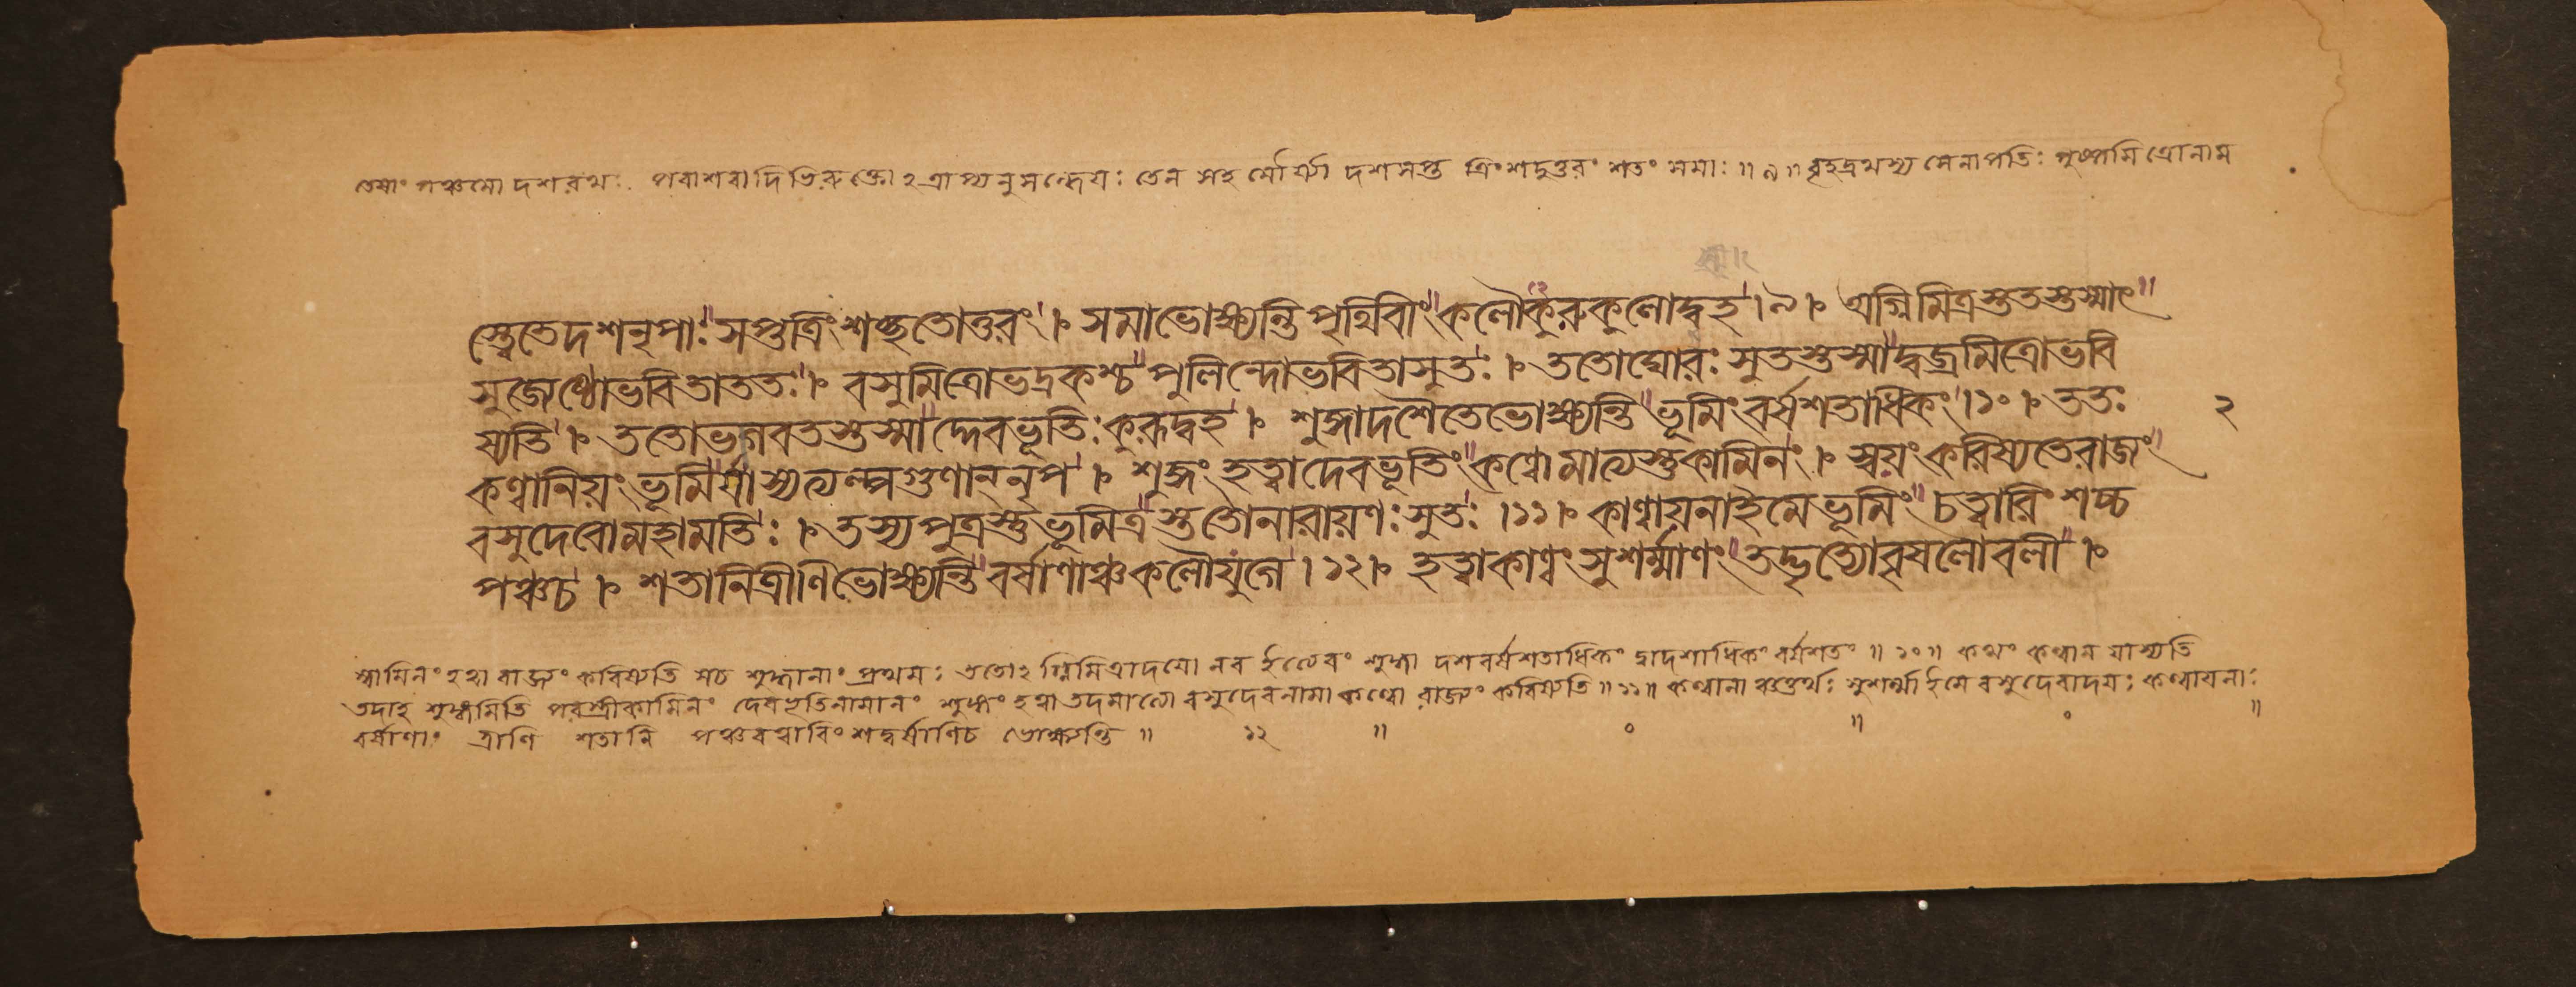 তেষাং পঞ্চমো দশরথঃ পরাশরাদিভিরুক্তোঽত্রাপ্যনুসন্ধেয়ঃ তেন সহ মৌর্য্যা দশসপ্ত ত্রিংশদুত্তরং শতং সমাঃ ॥ ৯ ॥ বৃহদ্রথস্য সেনাপতিঃ পুষ্পমিত্রোনাম
স্ত্বেতেদশনৃপাঃ সপ্তত্রিংশচ্ছতোত্তরং । সমাভোক্ষ্যন্তি পৃথিবীং কলৌকুরুকুলোদ্বহ । ৯ । অগ্নিমিত্রস্তুতস্তুস্মাৎ
সুজ্যেষ্ঠোভবিতাততঃ । বসুমিত্রোভদ্রকশ্চ পুলিন্দোভবিতাসুতঃ । ততোঘোরঃ সুতস্তুস্মাদ্বজ্রমিত্রোভবি
ষ্যতি । ততোভগবতস্তুস্মাদ্দেবভূতিঃ কুরূদ্বহ । শুঙ্গাদশৈতেভোক্ষ্যন্তি ভূমিংবর্ষশতাধিকং । ১০ । ততঃ
২
কণ্বানিয়ং ভূমির্য্যাস্যেত্যল্পগুণান্নৃপ । শুঙ্গং হত্বাদেবভূতিং কণ্বোমাত্যস্তুকামিনং । স্বয়ংকরিষ্যতেরাজ্যং
বসুদেবোমহামতিঃ । তস্যপুত্রস্তুভূমিত্রস্তুতোনারায়ণঃ সুতঃ । ১১ । কাণ্বায়নাইমেভূমিং চত্বারিংশচ্চ
পঞ্চচ । শতানিত্রীণিভোক্ষ্যন্তি বর্ষাণাঞ্চকলৌযুগে । ১২ । হত্বাকাণ্বং সুশর্ম্মাণং তদ্ভৃত্যোবৃষলোবলী ।
স্বামিনং হত্বা রাজ্যং করিষ্যতি সচ শুঙ্গানাং প্রথমঃ ততোঽগ্নিমিত্রাদয়ো নব ইত্যেবং শুঙ্গা দশবর্ষশতাধিকং দ্বাদশাধিকং বর্ষশতং ॥ ১০ ॥ কথং কণ্বান যাস্যতি
তদাহ শুঙ্গমিতি পরস্ত্রীকামিনং দেবভূতিনামানং শুঙ্গং হত্বা তদমাত্যো বসুদেবনামা কণ্বো রাজ্যং করিষ্যতি ॥ ১১ ॥ কণ্বানা সুশর্ম্মা ইমে বসুদেবাদয়ঃ কণ্বায়নাঃ
বর্ষাণাং ত্রীণি শতানি পঞ্চচত্বারিংশদ্বর্ষাণিচ ভোক্ষ্যন্তি ॥ ১২ ॥ ० ॥ ० ॥